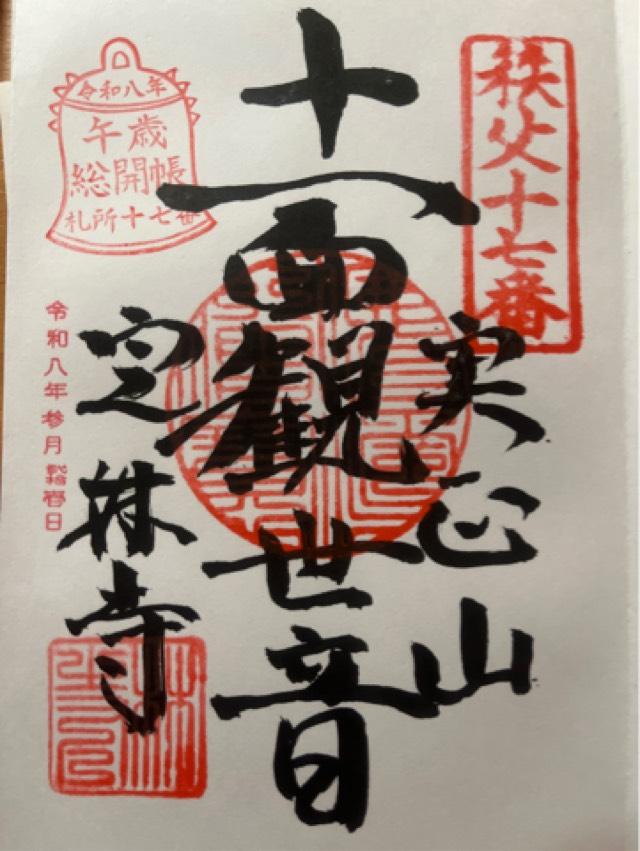 秩父十七番
実正山
十一面観世音
定林寺
令和八年
午歳
総開帳
札所十七番
令和八年参月